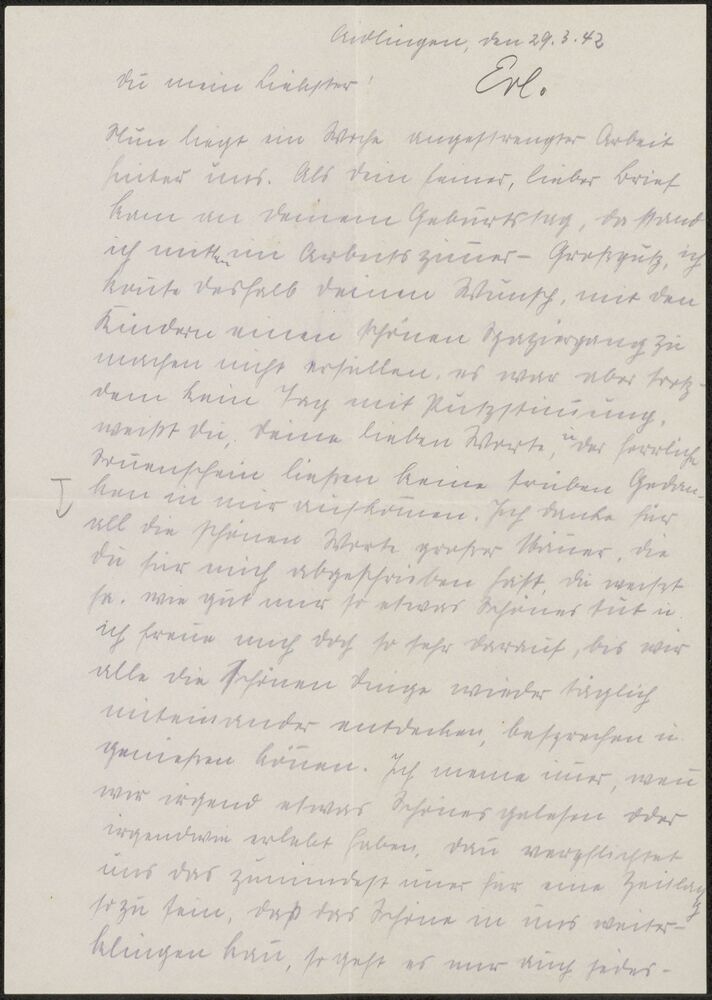 Aidlingen, den 29.3.42
Erl.
Du mein Liebster!
Nun liegt ein Woche angestrengter Arbeit
hinter uns. Als dein feiner, lieber Brief
kam an deinem Geburtstag, da stand
ich mitten im Arbeitszimer-Großputz, ich
konte deshalb deinen Wunsch, mit den
Kindern einen schönen Spaziergang zu
machen nicht erfüllen. es war aber trotz-
dem kein Tag mit Putzstimung,
weißt du, deine lieben Worte, u der herrliche
Sonenschein ließen keine trüben Gedan-
ken in mir aufkomen. Ich danke für
all die schönen Worte großer Mäner, die
du für mich abgeschrieben hast, du weißt
ja. wie gut mir so etwas Schönes tut u.
ich freue mich doch so sehr darauf, bis wir
alle die schönen Dinge wieder täglich
miteinander entdecken, besprechen u.
genießen könen. Ich meine imer, wen
wir irgend etwas Schönes gelesen oder
irgendwie erlebt haben, dan verpflichtet
uns das zumindest imer für eine Zeitlang
so zu sein, daß das Schöne in uns weiter-
klingen kan, so geht es mir auch jedes-